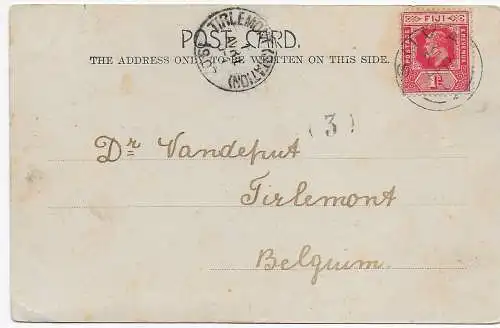 POST CARD.
THE ADDRESS ONLY TO BE WRITTEN ON THIS SIDE.
TIRLEMONT (STATION)
FIJI
POSTAGE
& REVENUE
1d
( 3 )
Dr Vandeput
Tirlemont
Belgium